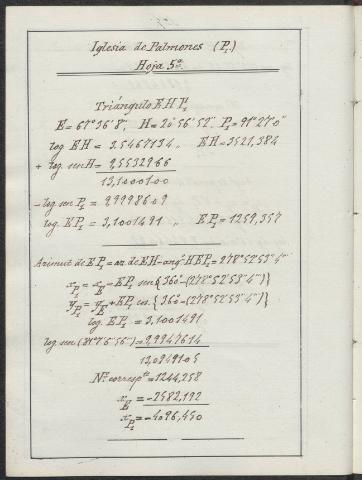 Iglesia de Palmones (P₁)
Hoja 5ª
Triángulo E H P₁
E = 67°36'8", H = 20°56'52", P₁ = 91°27'0"
log EH = 3.5467134 " EH = 3521,382
+ log sen H = 9,5532966
13,1000100
- log sen P₁ = 9,9998609
log EP₁ = 3,1001491 " EP₁ = 1259,357
Azimut de EP₁ = az. de EH - angº HEP₁ = 278°52'53"4‴
x_P₁ = x_E - EP₁ sen {360 - (278°52'53"4‴)}
y_P₁ = y_E + EP₁ cos. {360 - (278°52'53"4‴)}
log. EP₁ = 3,1001491
log sen (81°7'6"56‴) = 9,9947614
13,0949105
Nº. correspᵗᵉ = 1244,258
x_E = -2582,192
x_P₁ = -4096,450